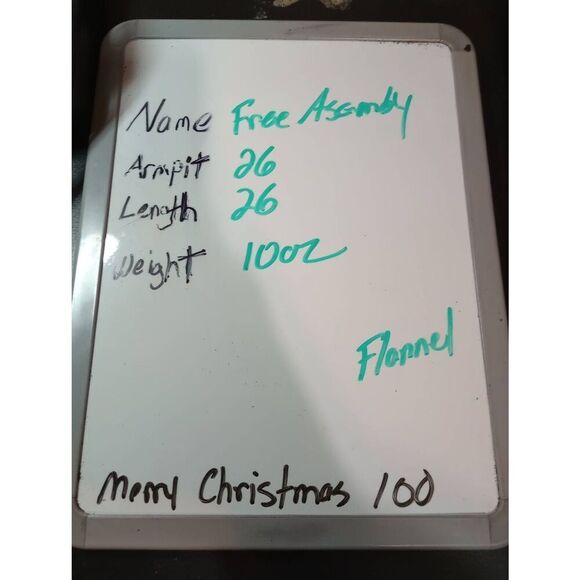 Name Free Assembly
Armpit 26
Length 26
Weight 10oz
Flannel
Merry Christmas 100